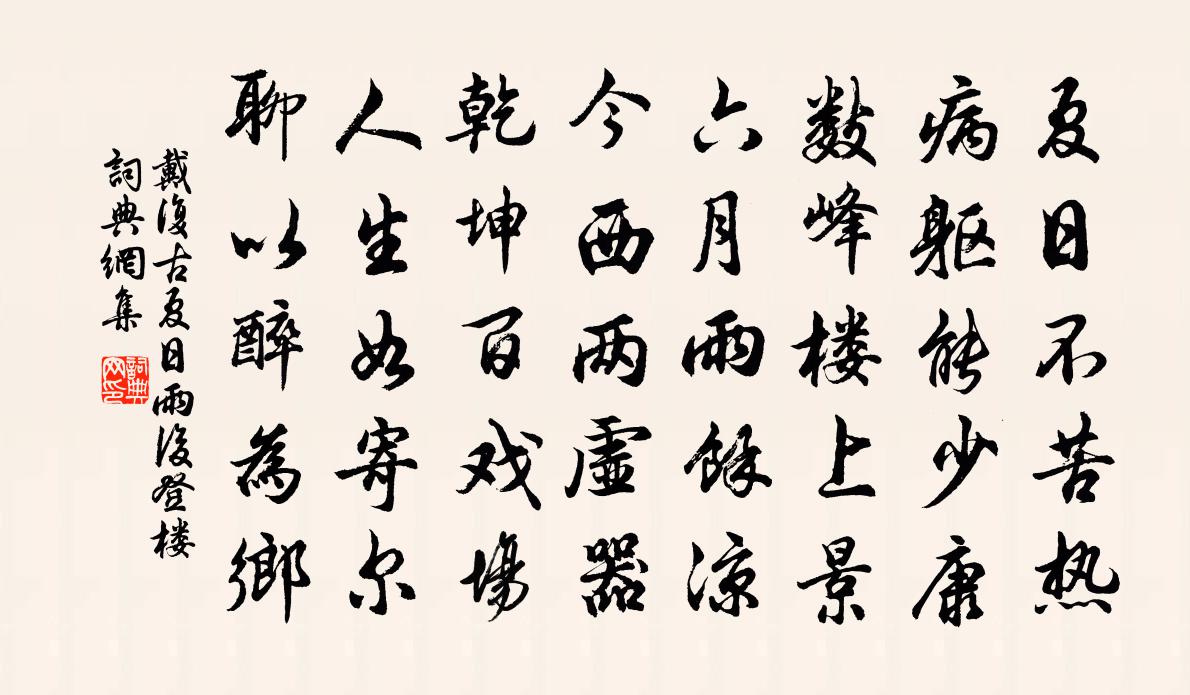 夏日不苦热
病躯能少康
数峰楼上景
六月雨馀凉
今西两虚器
乾坤百戏场
人生如寄尔
聊以醉为乡
戴復古夏日雨後登楼
詞典網集
詞典网印